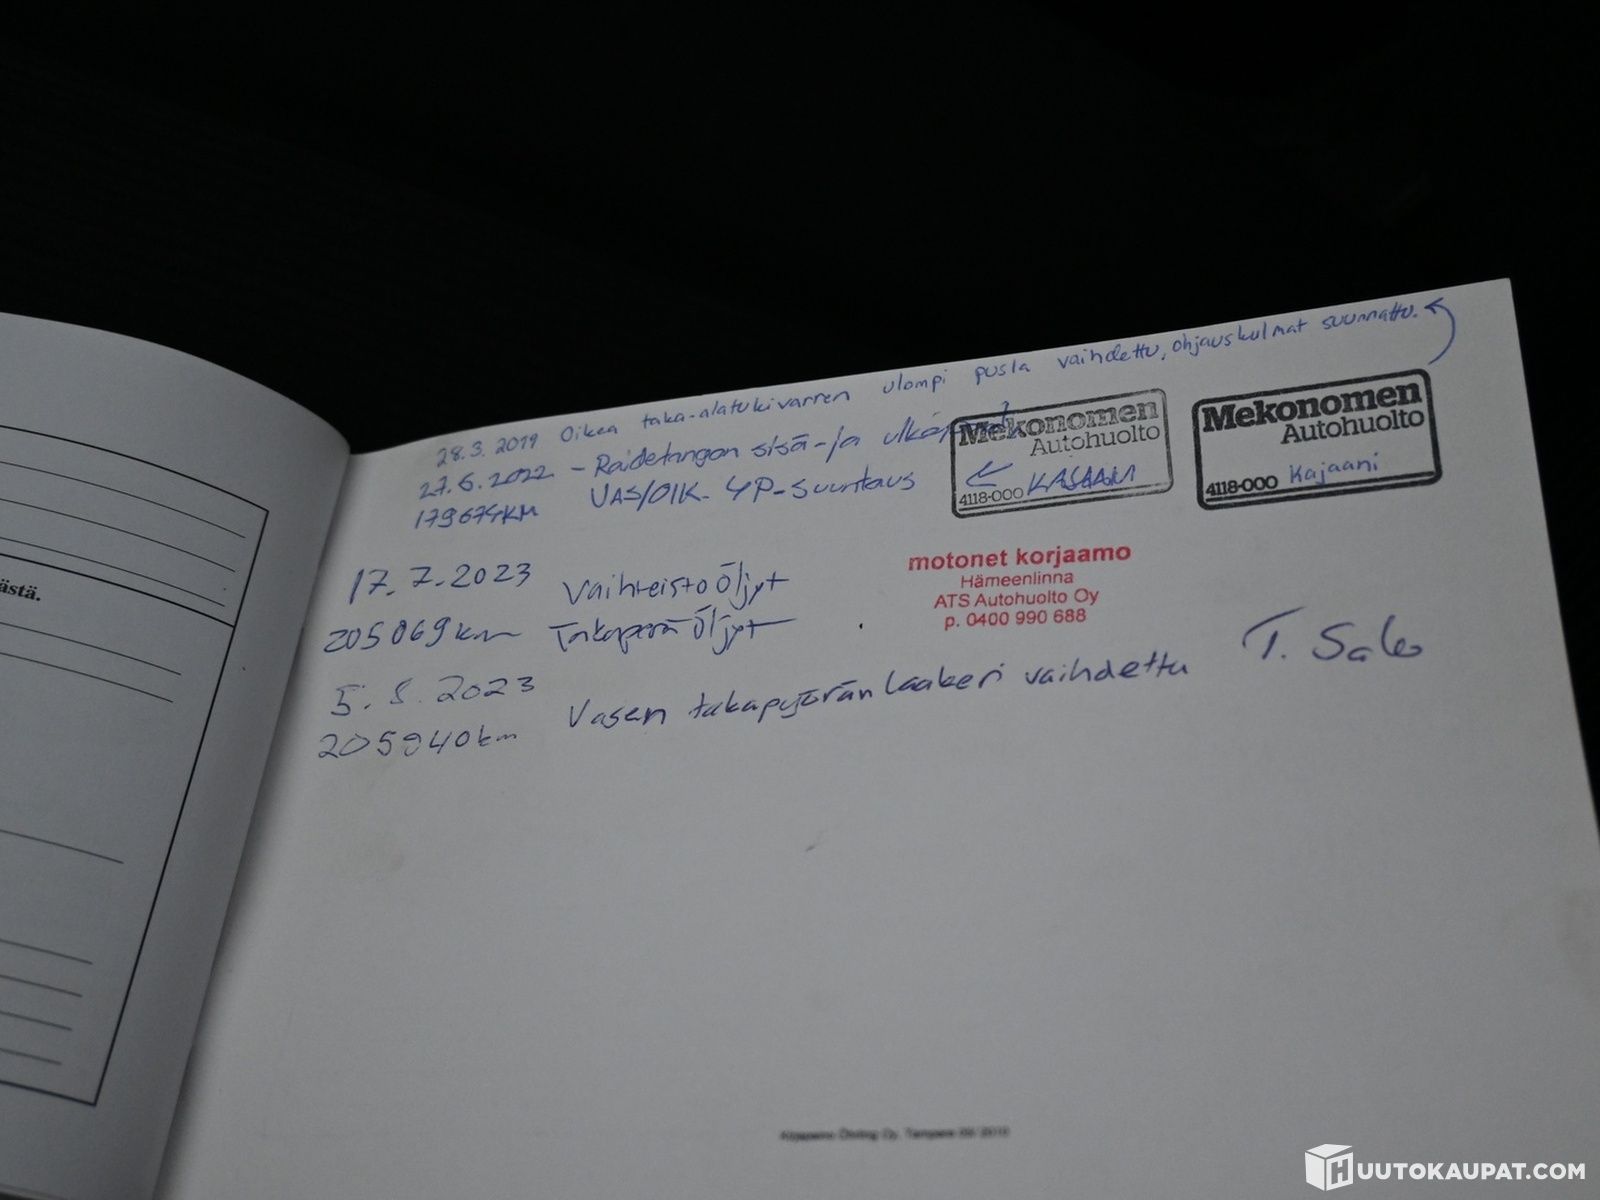 28.3.2019 Oikea taka-alatukivarren ulompi pusla vaihdettu, ohjauskulmat suunnattu.
27.6.2022 - Raidetangon sisä- ja ulkopäät
179674KM VAS/OIK. 4P-suuntaus
Mekonomen
Autohuolto
4118-000 KAJAANI
Mekonomen
Autohuolto
4118-000 Kajaani
17.7.2023 Vaihteistoöljyt
205069km Takaperä öljyt
motonet korjaamo
Hämeenlinna
ATS Autohuolto Oy
p. 0400 990 688
5.8.2023 Vasen takapyörän laakeri vaihdettu T. Salo
205940km
ästä.
Kirjapaino Öhrling Oy, Tampere
HUUTOKAUPAT.COM